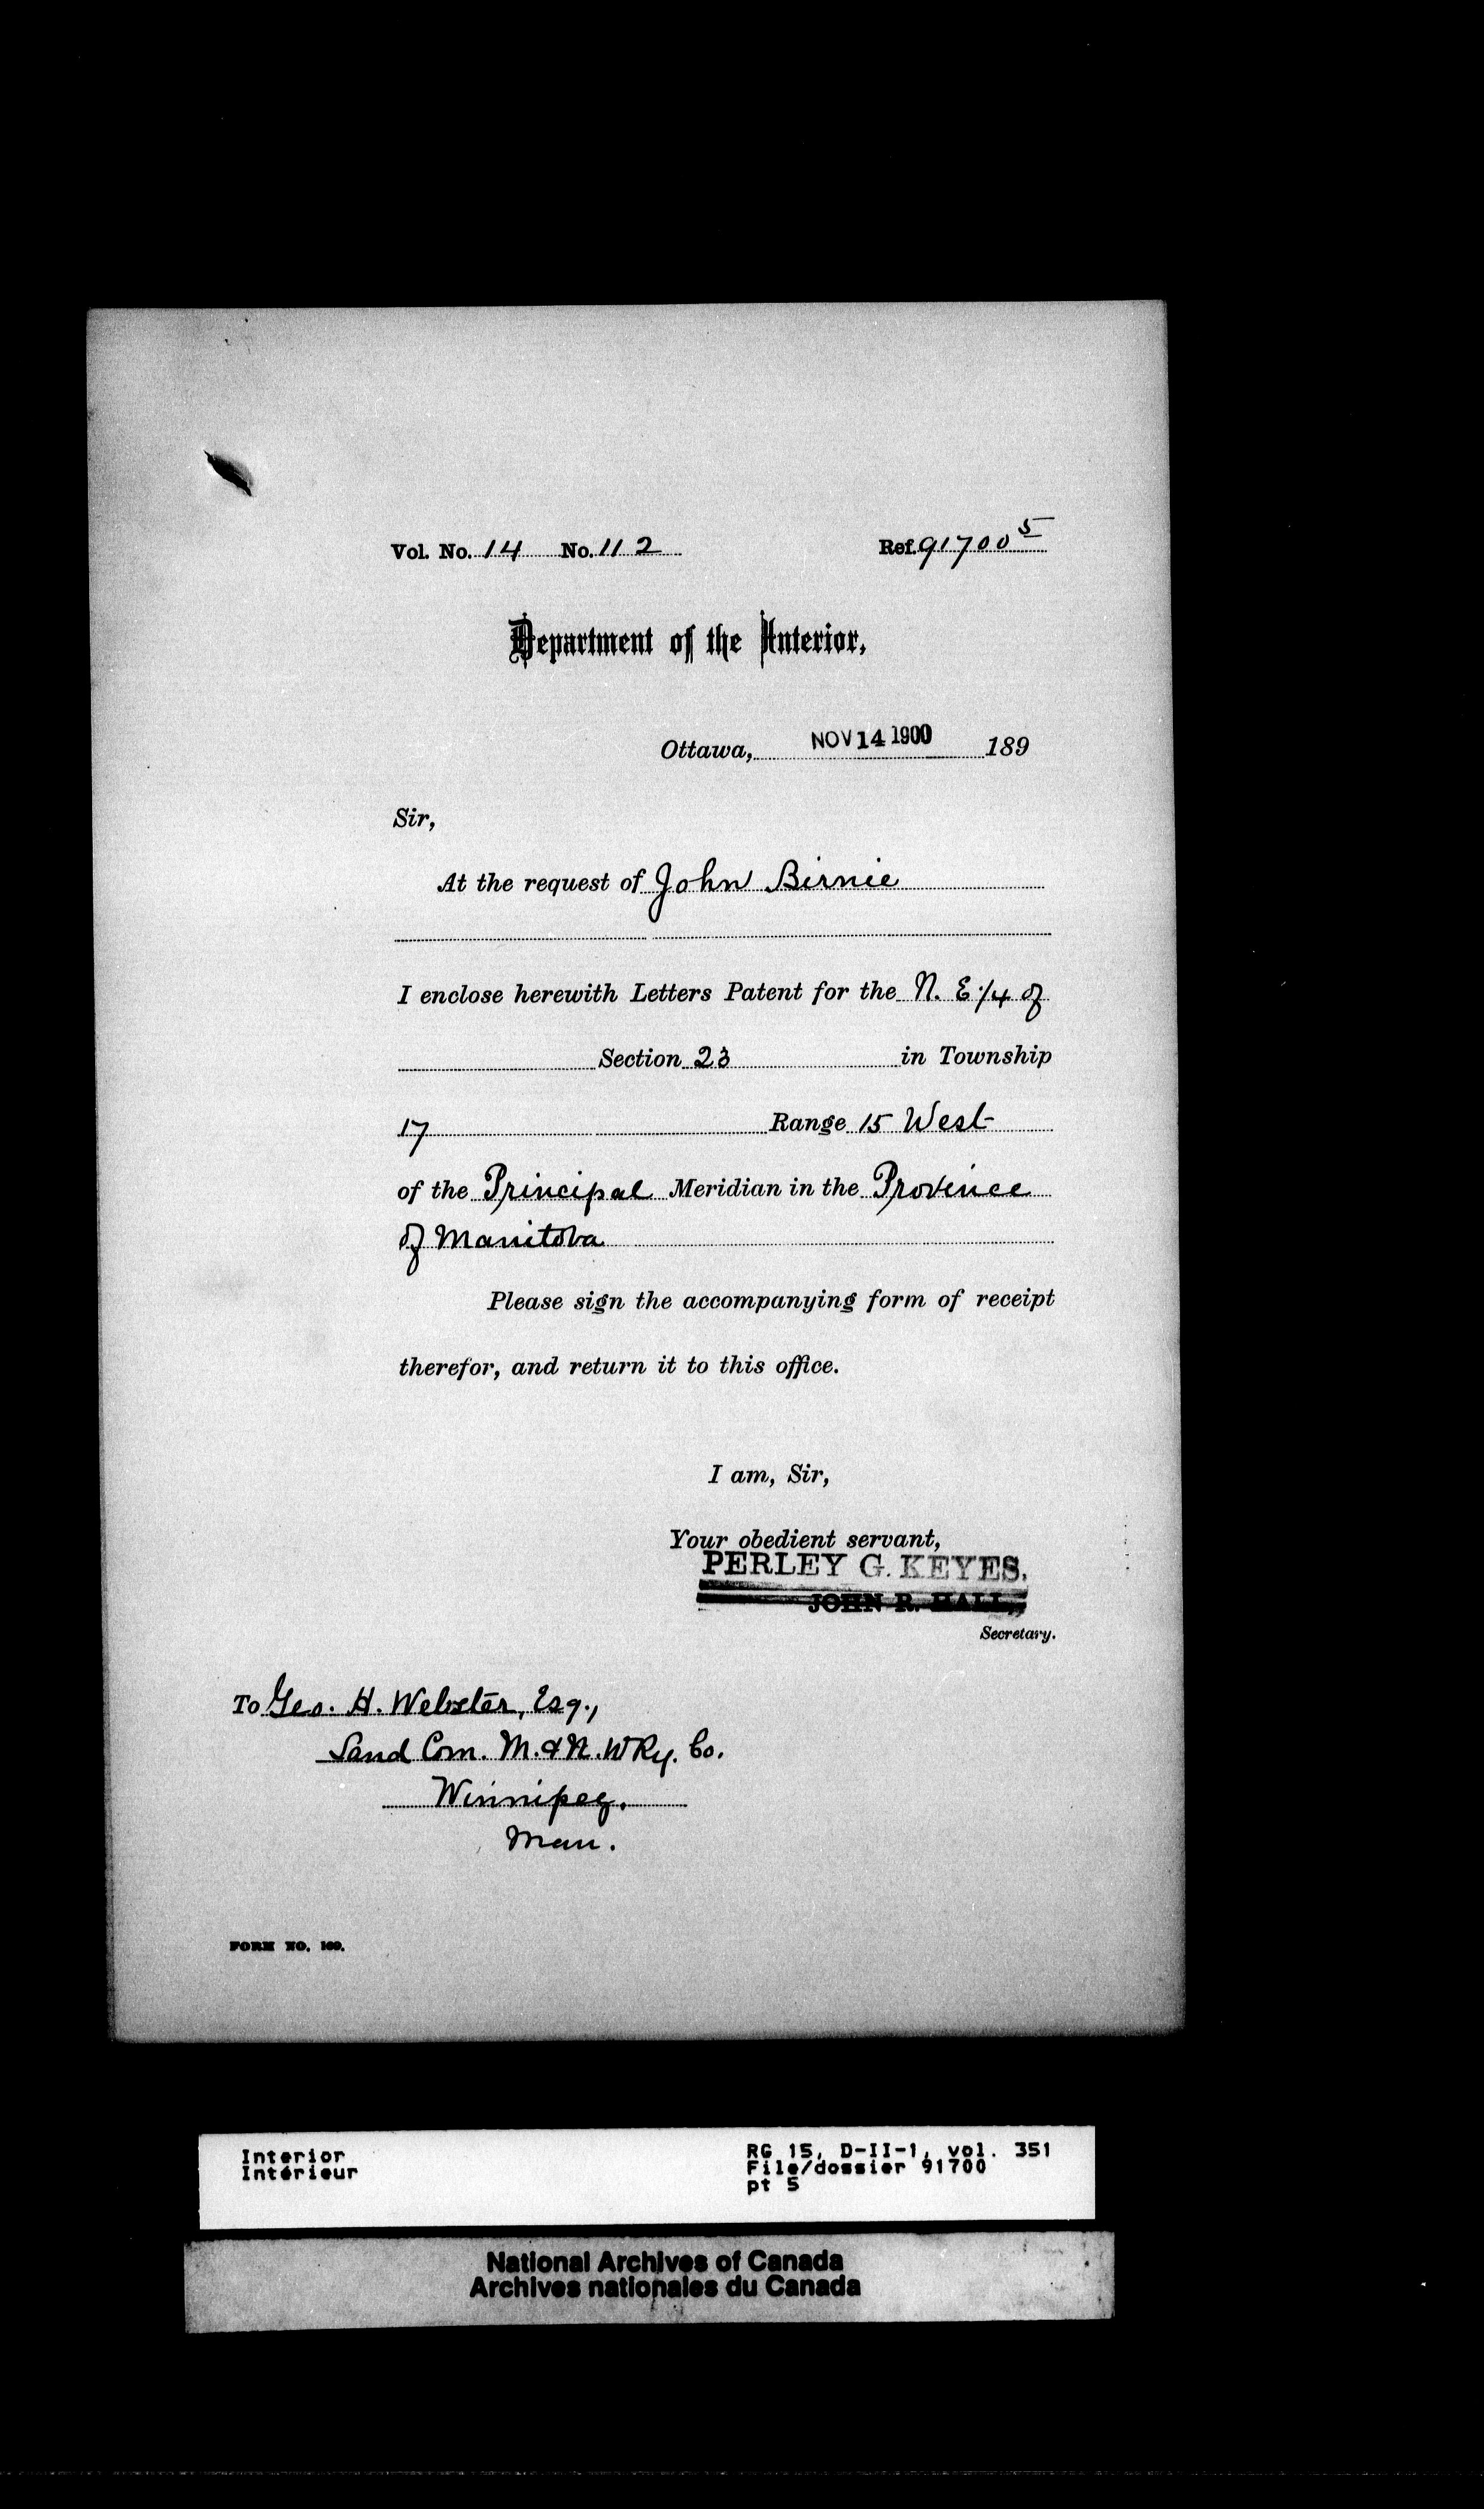 Vol. No. 14 No. 112 Ref. 91700 5
Department of the Interior,
Ottawa, NOV 14 1900 189
Sir,
At the request of John Birnie
I enclose herewith Letters Patent for the N. E. 1/4 of
Section 23 in Township
17 Range 15 West
of the Principal Meridian in the Province
of Manitoba
Please sign the accompanying form of receipt
therefor, and return it to this office.
I am, Sir,
Your obedient servant,
PERLEY G. KEYES,
JOHN R. HALL,
Secretary.
To Geo. H. Webster, Esq.,
Land Com. M. & N. W Ry. Co.
Winnipeg.
Man.
FORM NO. 109.
Interior RG 15, D-II-1, vol. 351
Intérieur File/dossier 91700
pt 5
National Archives of Canada
Archives nationales du Canada